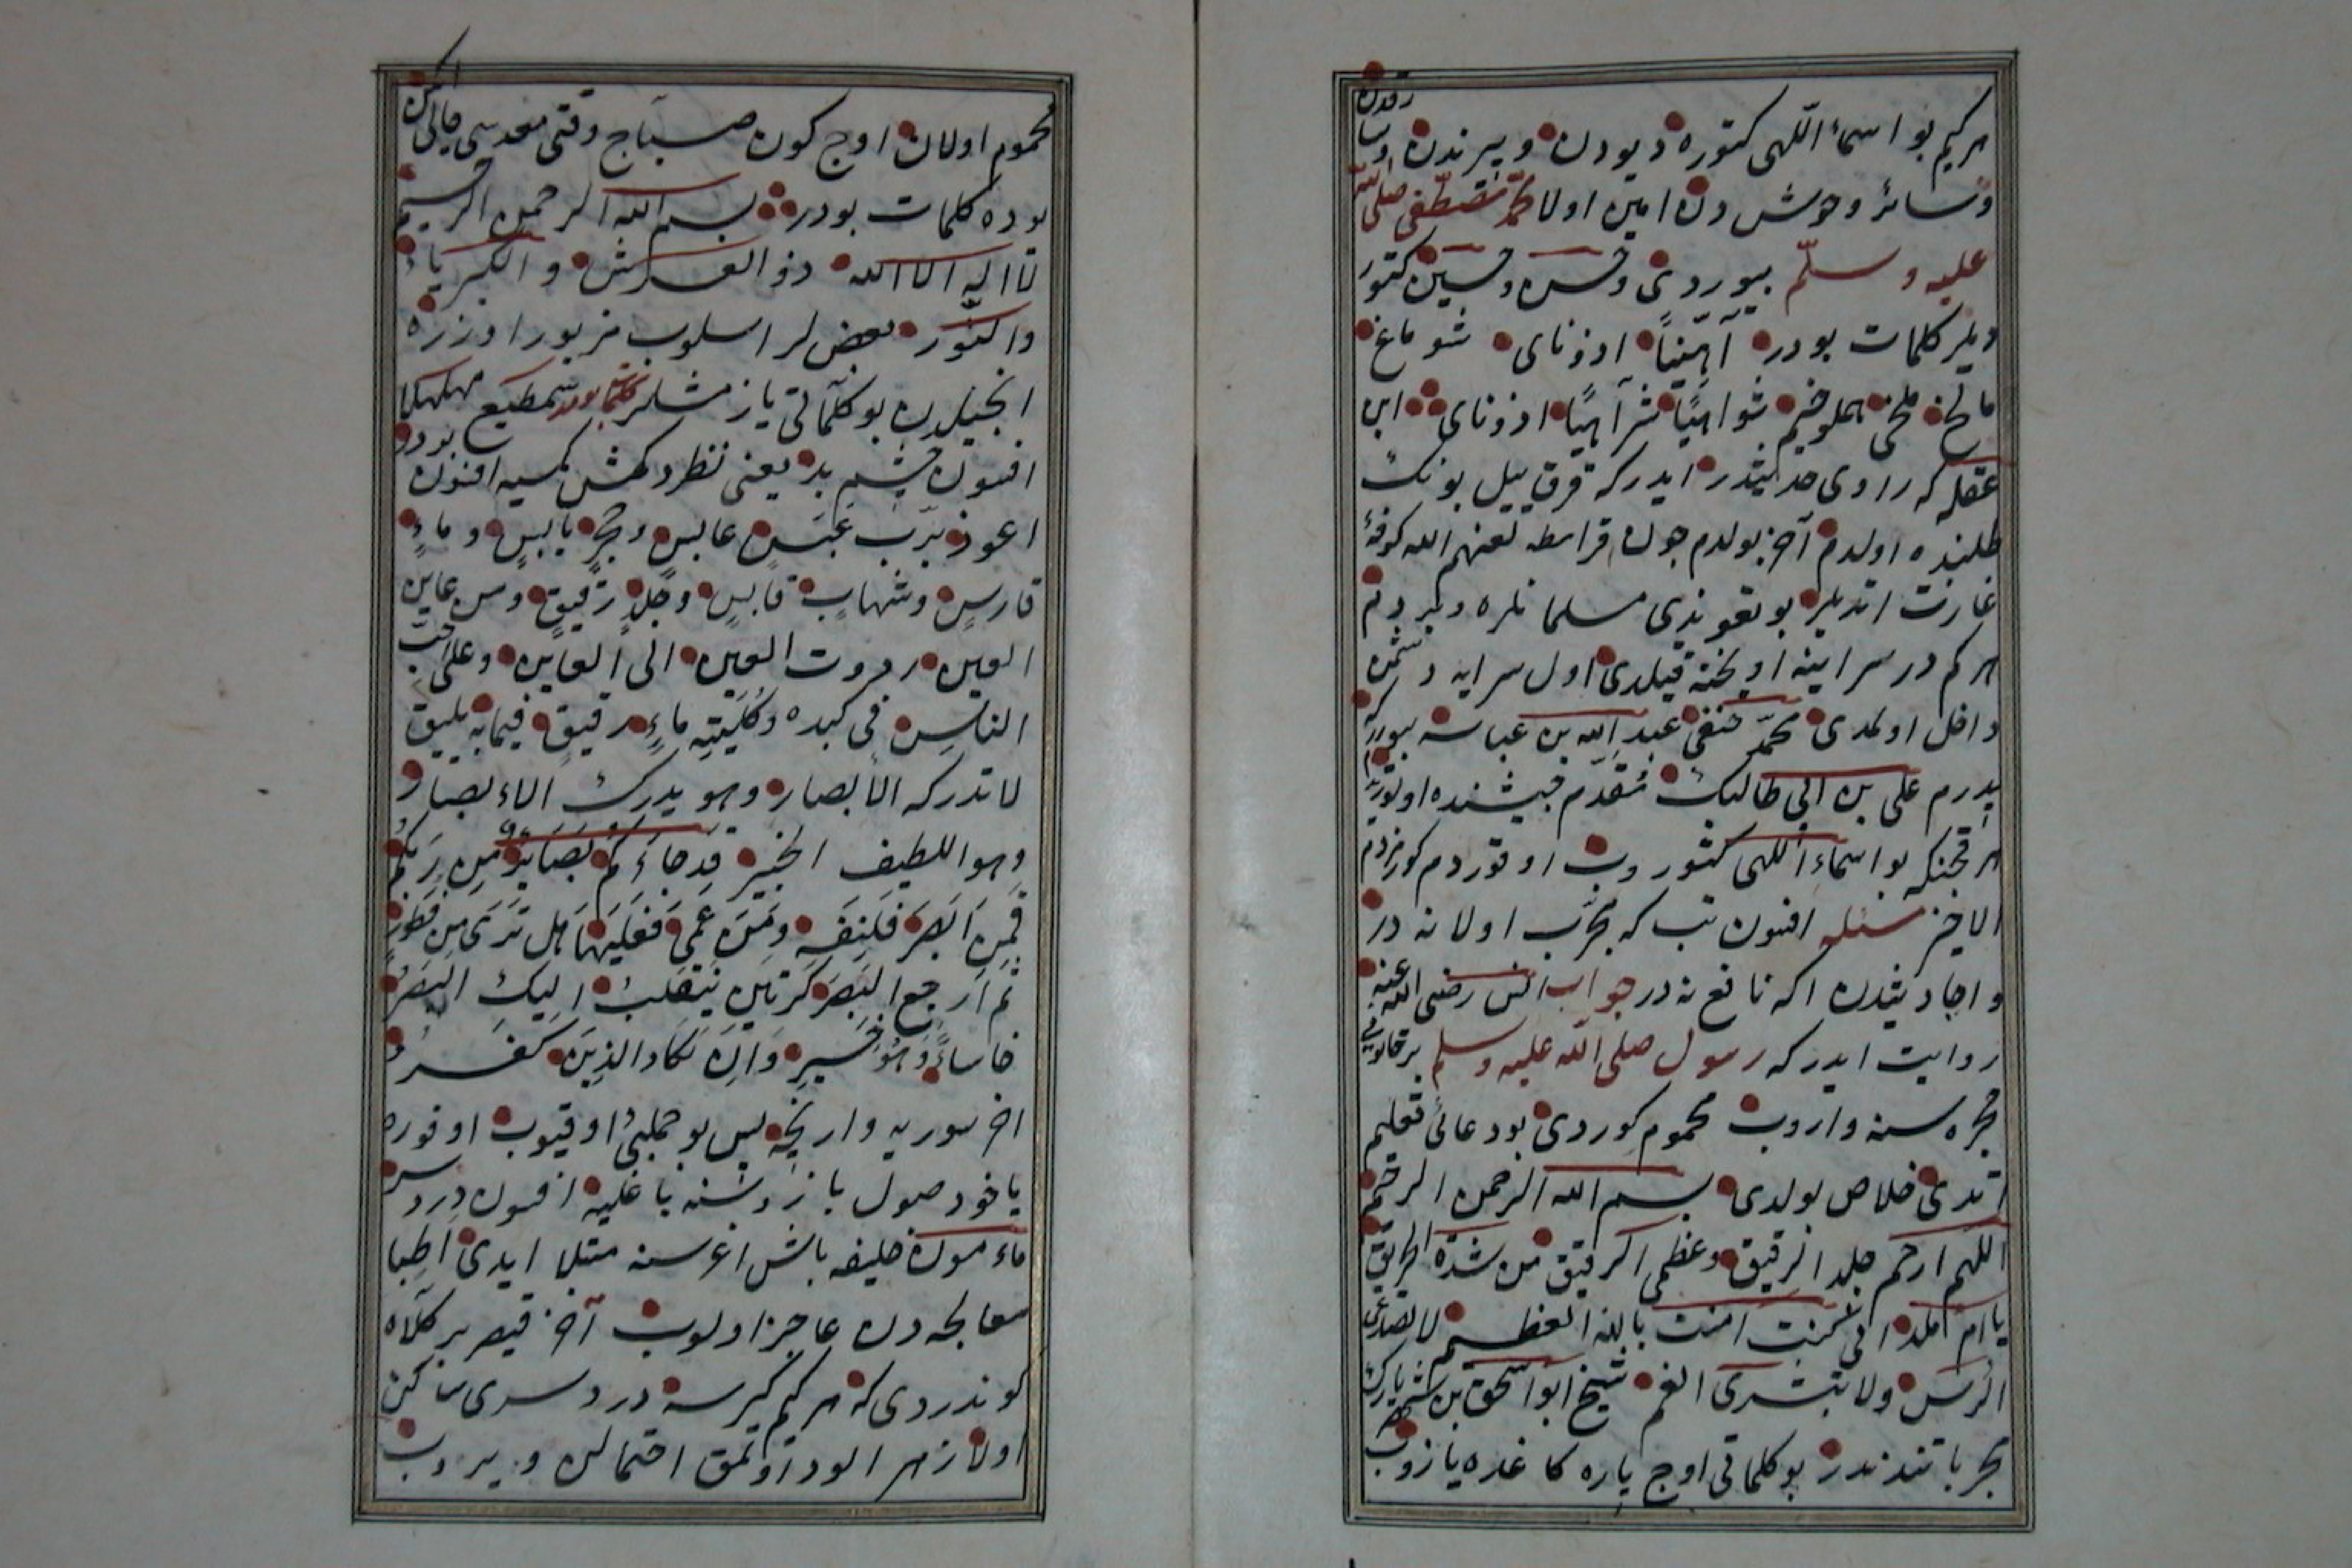 هر کیم بو اسماء اللهی کتوره دیودن و پریدن و سارقدن
و سائر وحوش دن امین اولا محمد مصطفی صلی الله
علیه وسلم بیوردی و حسن و حسین کتور
دیلر کلمات بودر آهیّناً اذونای شوماغ
مالخ ملخی هملوخیم شواهیّاً شرآهیّاً اذونای ابن
عقله که راوی حدیثدر ایدرکه قرق ییل بونک
طلبنده اولدم آخر بولدم چون قرامطه لعنهم الله کوفۀ
غارت اتدیلر بو تعویذی مسلمانلره ویردم
هر کم در سراینه اویخته قیلدی اول سرایه دشمن
داخل اولمدی محمد حنفی عبد الله بن عباسه بیوردی که
پدرم علی بن ابی طالبک مقدم جیشنده اولوردم
هر قچنکه بو اسماء اللهی کتوروب اوقوردم کورنمزدم
الاخیر سئله افسون تب که مجرب اولا نه در
و احادیثدن اکه نافع نه در جواب انس رضی الله عنه
روایت ایدرکه رسول صلی الله علیه وسلم بر خاتون
حجره سنه واروب محموم کوردی بو دعائی تعلیم
اتدی خلاص بولدی بسم الله الرحمن الرحیم
اللهم ارحم جلد الرقیق وعظمی الرقیق من شدة الحریق
یا ام ملدم ان کنت امنت بالله العظیم لا تصدعی
الراس ولا تشربی الدم شیخ ابو اسحق بن شهریارک
تجرباتندندر بو کلماتی اوچ پاره کاغده یازوب
محموم اولان اوچ کون صباح وقتی معده سی خالی اکن
یوده کلمات بودر بسم الله الرحمن الرحیم
لا اله الا الله ذو العرش و الکبریاء
والنور بعض لر اسلوب مزبور اوزره
انجیلدن بو کلماتی یازمشلر کلمات بودر شمطیع مهکهکا
افسون چشم بد یعنی نظر دکمش کمسیه افسون بودر
اعوذ برب عبس عابس وحجر یابس و ماءٍ
قارس وشهاب قابس وجلد رقیق ومن عاین
العین رددت العین الی العاین وعلی احب
الناس فی کبده وکلیتیه ماءٍ رقیق فیما به یلیق
لا تدرکه الابصار وهو یدرک الابصار
وهو اللطیف الخبیر قد جاءکم بصائر من ربکم
فمن ابصر فلنفسه ومن عمی فعلیها هل تری من فطور
ثم ارجع البصر کرتین ینقلب الیک البصر
خاسئا وهو حسیر وان یکاد الذین کفرو
اخر سوریه وارنجه پس بو جملیئ اوقیوب اوفوره
یا خود صول بازوسنه باغلیه افسون درد سر
ماءمون خلیفه باش اغرسنه مبتلا ایدی اطبا
معالجه دن عاجز اولوب آخر قیصر بر کلاه
کوندردی که هر کیم کیرسه درد سری ساکن
اولا زهرالود اولمق احتمالن ویروب